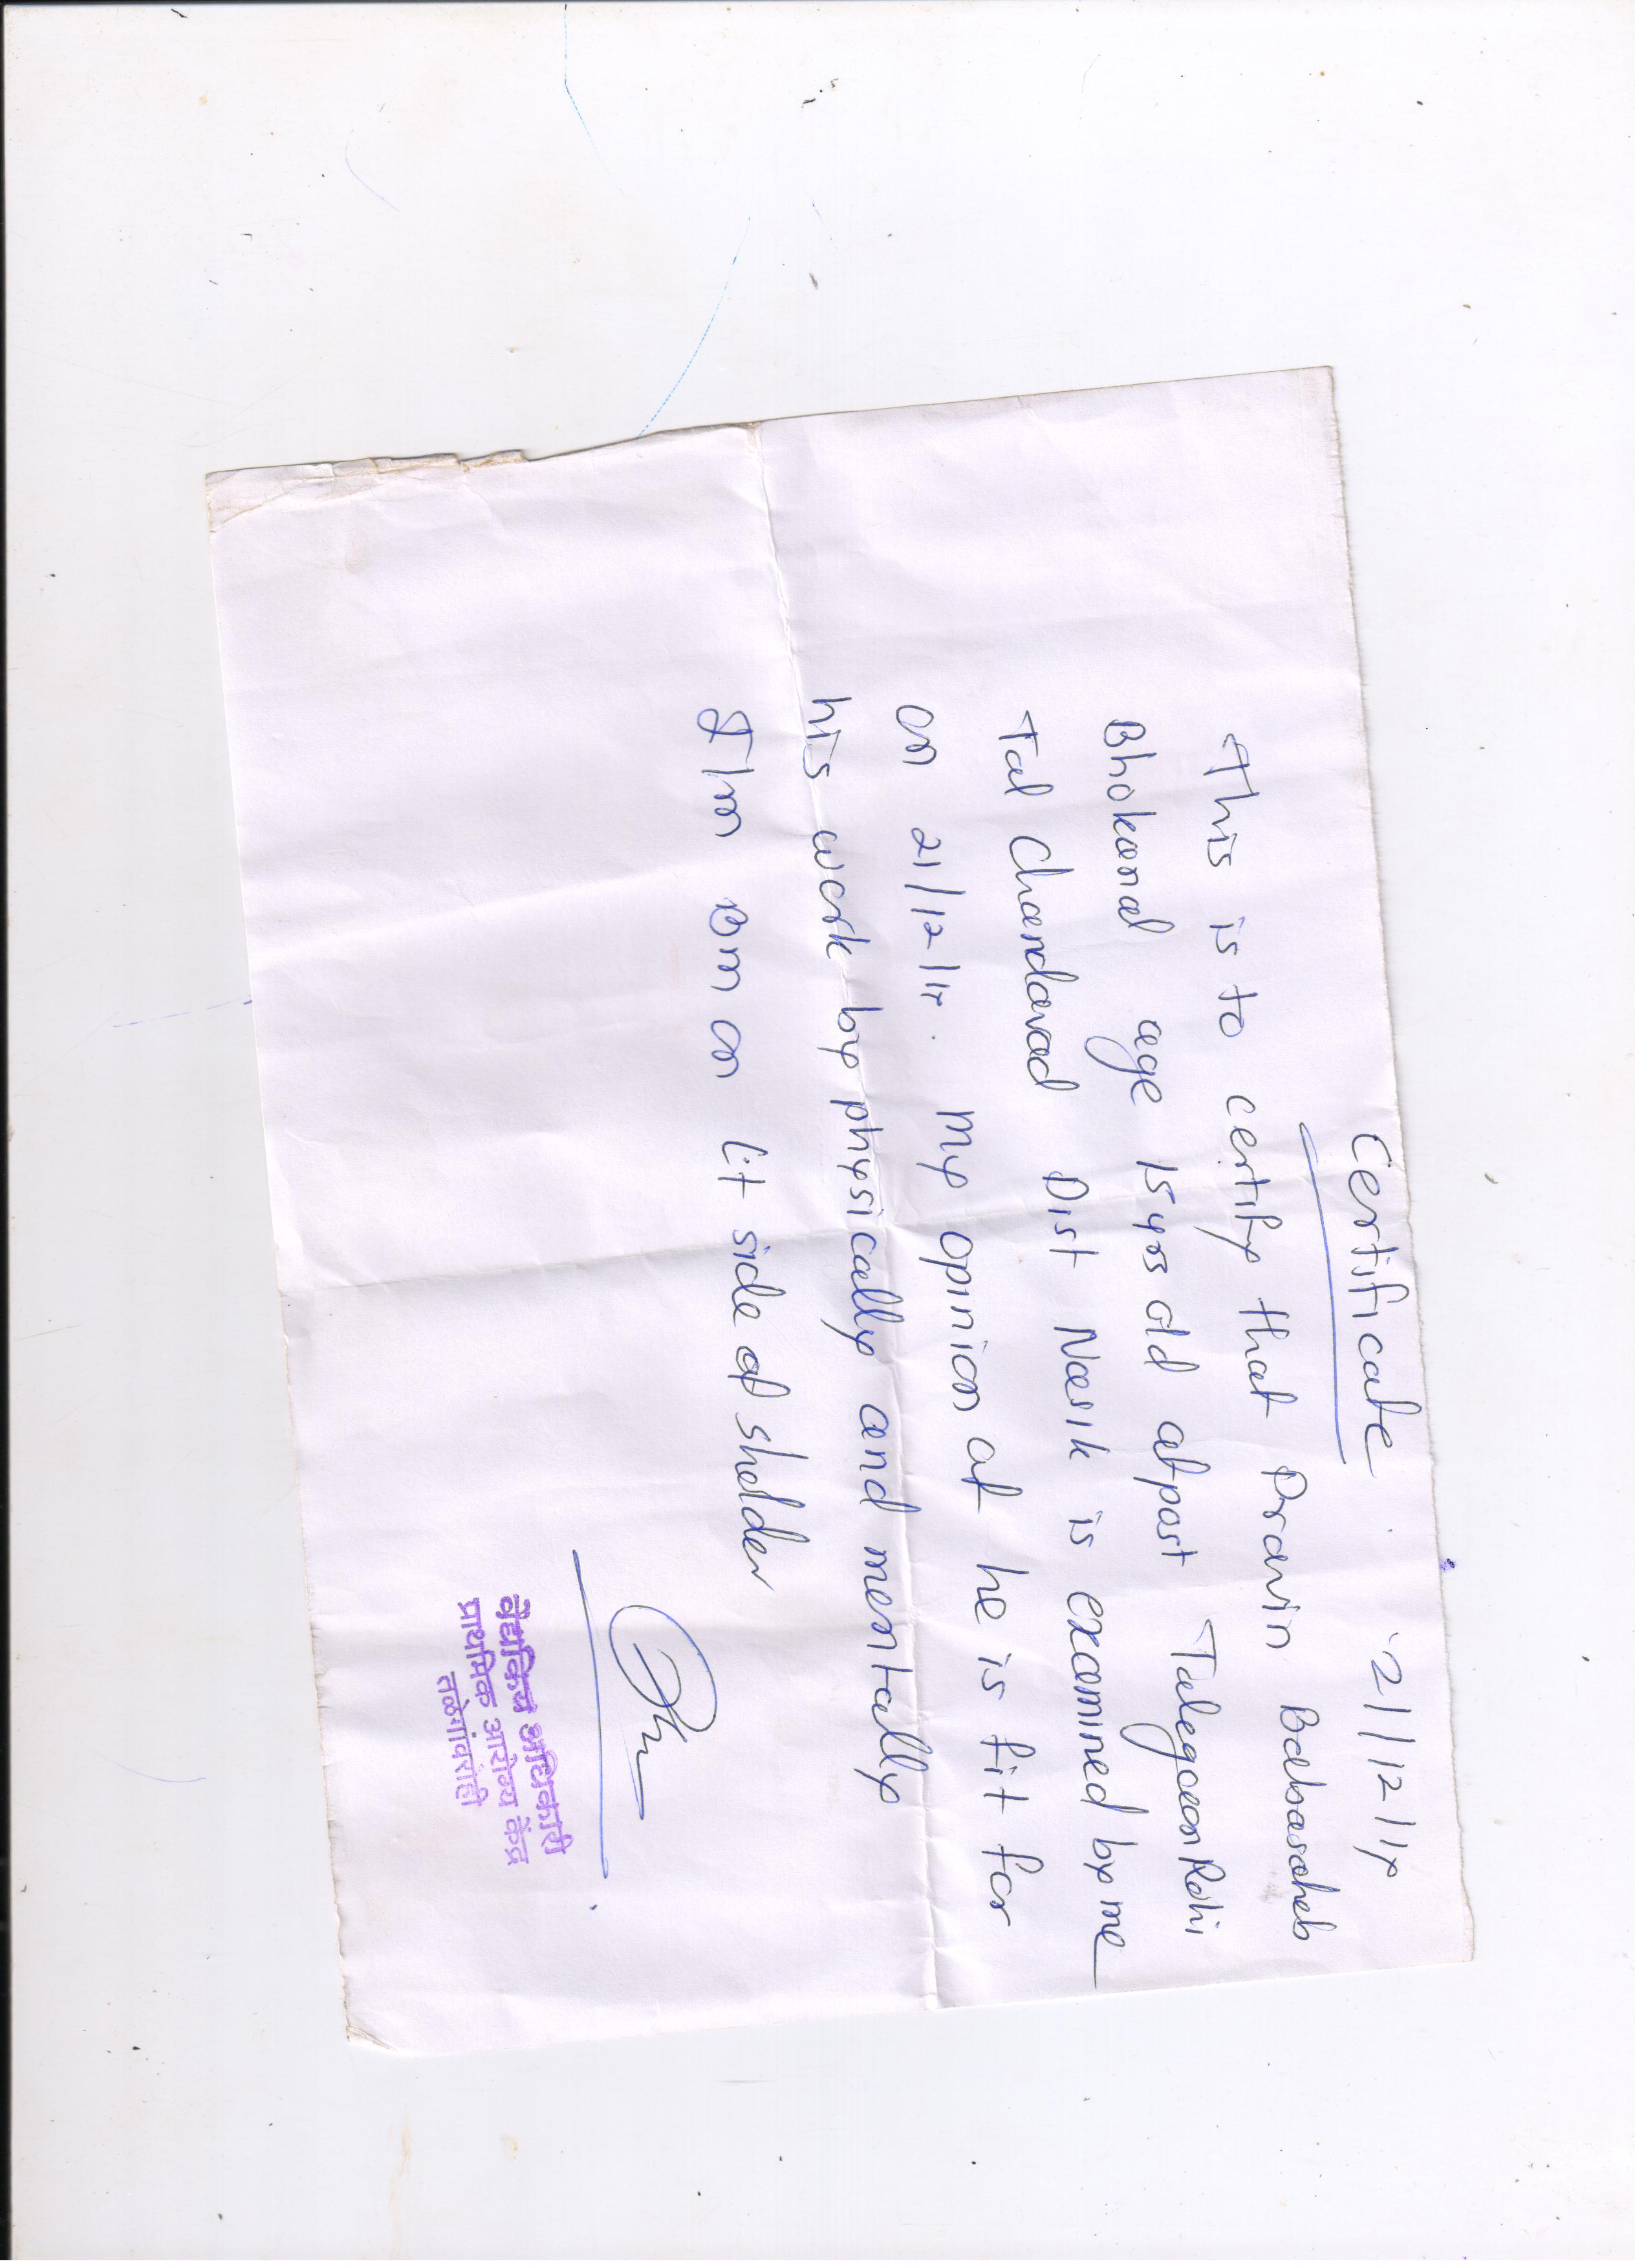 Certificate 21/12/14
This is to certify that Pravin Babasaheb
Bhokanal age 15 yrs old at post Talegaon Rohi
Tal Chandavad Dist Nasik is examined by me
on 21/12/14. My opinion at he is fit for
his work by physically and mentally
on Lit side of sholder
वैद्यकिय अधिकारी
प्राथमिक आरोग्य केंद्र
तळेगांवरोही